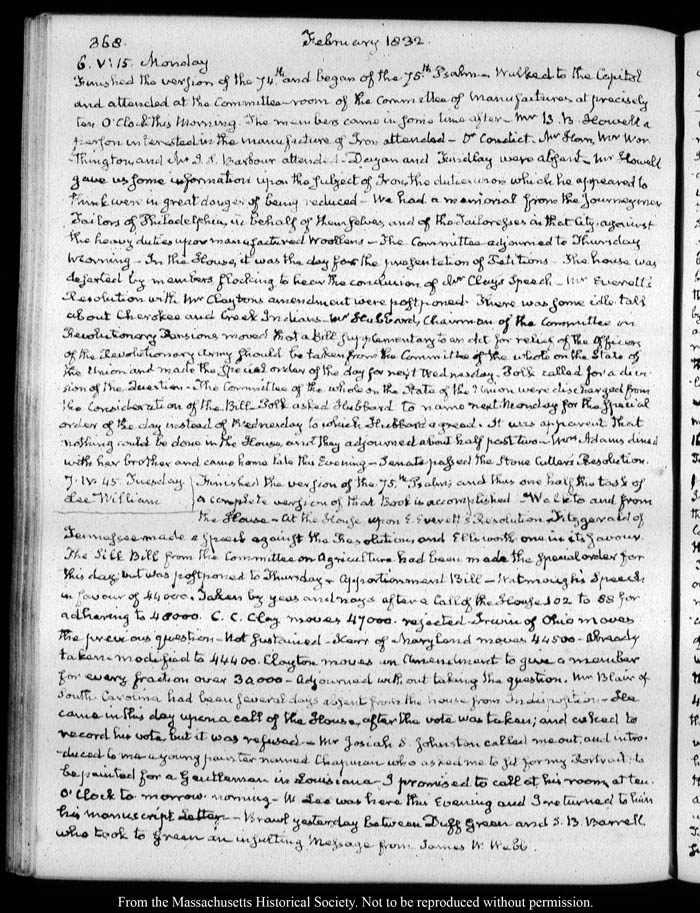 368. February 1832.
6. V:15. Monday
Finished the version of the 74th and began of the 75th Psalm. Walked to the Capitol
and attended at the Committee-room of the Committee of Manufactures at precisely
ten O'Clock this Morning. The members came in some time after - Mr B. B. Howell a
person interested in the manufacture of Iron attended - Dr Condict, Mr Horn, Mr Wor-
thington, and Mr J. S. Barbour attended - Dayan and Findlay were absent. Mr Howell
gave us some information upon the subject of Iron, the duties upon which he appeared to
think were in great danger of being reduced - We had a memorial from the Journeymen
Tailors of Philadelphia, in behalf of themselves and of the Tailoresses in that City, against
the heavy duties upon manufactured Woollens - The Committee adjourned to Thursday
Morning - In the House, it was the day for the presentation of Petitions. The house was
deserted by members flocking to hear the conclusion of Mr Clay's Speech - Mr Everett's
Resolution with Mr Clayton's amendment were postponed. There was some idle talk
about Cherokee and Creek Indians - Mr Hubbard, Chairman of the Committee on
Revolutionary Pensions moved that a Bill supplementary to an Act for relief of the Officers
of the Revolutionary army should be taken from the Committee of the whole on the State of
the Union and made the special order of the day for next Wednesday. Polk called for a divi-
sion of the Question - The Committee of the whole on the State of the Union were discharged from
the consideration of the Bill. Polk asked Hubbard to name next Monday for the special
order of the day instead of Wednesday to which Hubbard agreed. It was apparent that
nothing could be done in the House, and they adjourned about half past two - Mrs Adams dined
with her brother and came home late this Evening - Senate passed the Stone Cutter's Resolution.
7. IV:45. Tuesday Finished the version of the 75th Psalm, and thus one half the task of
Lee William a complete version of that Book is accomplished. Walk to and from
the House - At the House upon E. Everett's Resolution Fitzgerald of
Tennessee made a speech against the Resolution, and Ellsworth one in its favour.
The Silk Bill from the Committee on Agriculture had been made the special order for
this day but was postponed to Thursday. Apportionment Bill - Watmough's Speech
in favour of 44000. Taken by yeas and nays after a Call of the House 102 to 88 for
adhering to 48000. C. C. Clay moves 47000. rejected. Irwin of Ohio moves
the previous question - Not sustained - Kerr of Maryland moves 44500 - Already
taken - modified to 44400. Clayton moves an Amendment to give a member
for every fraction over 30,000 - Adjourned without taking the question. Mr Blair of
South Carolina had been several days absent from the house from Indisposition. He
came in this day upon a call of the House, after the vote was taken; and asked to
record his vote but it was refused - Mr Josiah S. Johnston called me out, and intro-
duced to me a young painter named Chapman who asked me to sit for my Portrait; to
be painted for a Gentleman in Louisiana - I promised to call at his room, at ten
O'Clock to-morrow morning - W. Lee was here this Evening and I returned to him
his manuscript Letter - Brawl yesterday between Duff Green and S. B. Barrell
who took to Green an insulting Message from James W. Webb.
From the Massachusetts Historical Society. Not to be reproduced without permission.